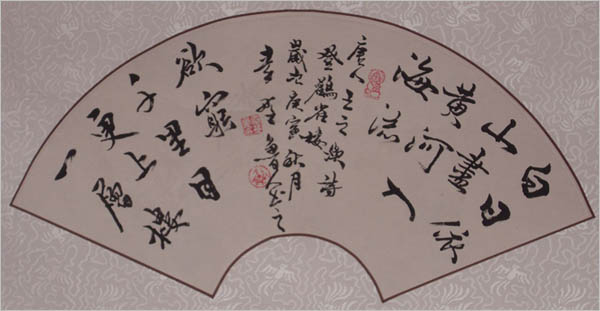 白日依
山盡
黃河入
海流
唐人王之渙詩
登鸛雀樓
歲在庚寅秋月
欲窮
千里目
更上
一層樓